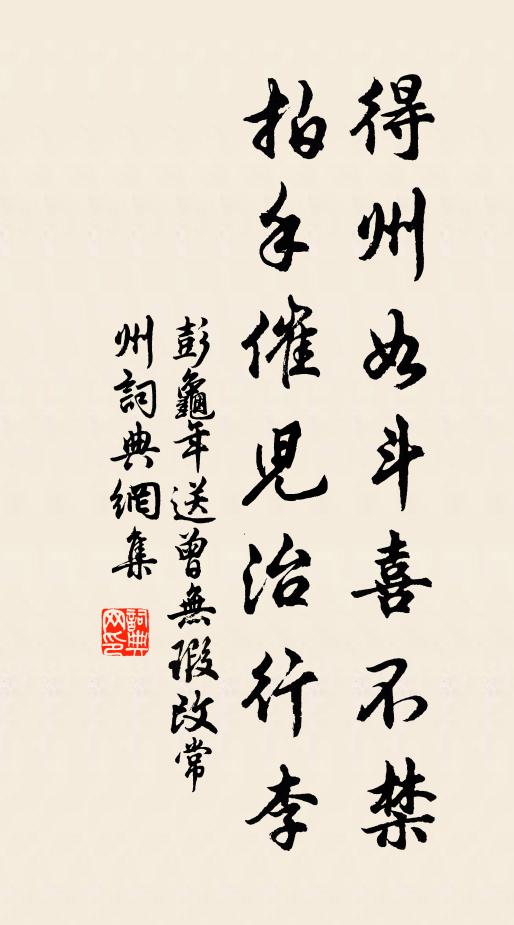 得州如斗喜不禁
拍手催兒治行李
彭龜年送曾無瑕改常
州詞典網集
詞典
网印